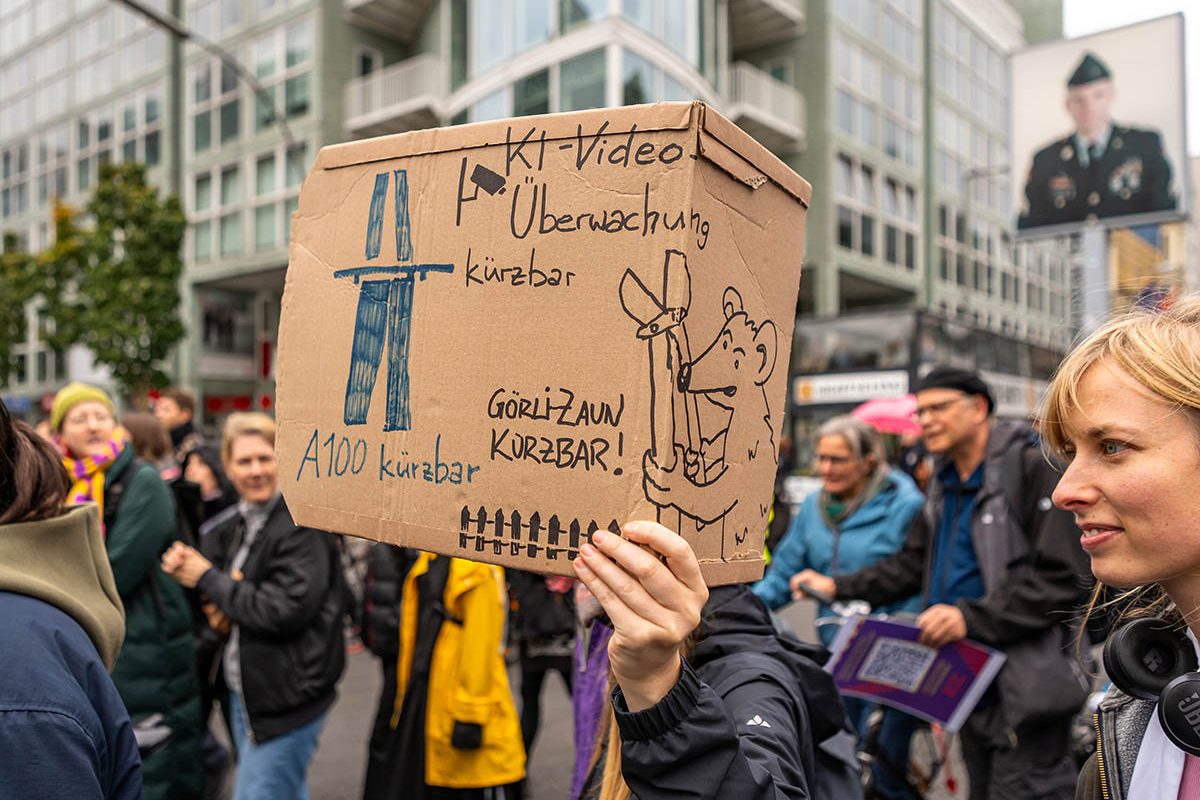 KI-Video-
Überwachung
kürzbar
A100 kürzbar
GÖRLI-ZAUN
KÜRZBAR!